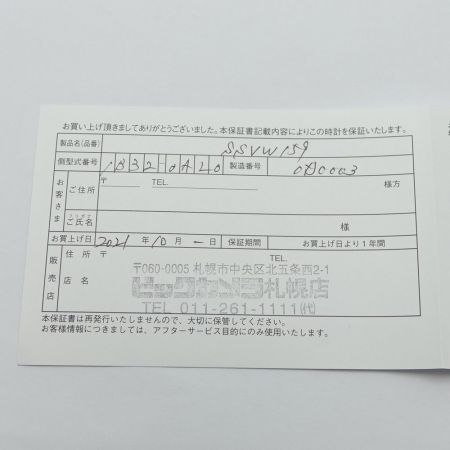 お買い上げ頂きましてありがとうございました。本保証書記載内容によりこの時計を保証いたします。
製品名(品番) SSVW159
側型式番号 1B32-0AL0 製造番号 0D0003
お客さま ご住所 〒 TEL. 様方
ご氏名 様
お買上げ日 2021 年 10 月 一 日 保証期間 お買上げ日より1年間
販売店 住所 〒 TEL.
〒060-0005 札幌市中央区北五条西2-1
店名 ビックカメラ札幌店
TEL 011-261-1111(代)
本保証書は再発行いたしませんので、大切に保管してください。
お客様情報につきましては、アフターサービス目的にのみ使用いたします。